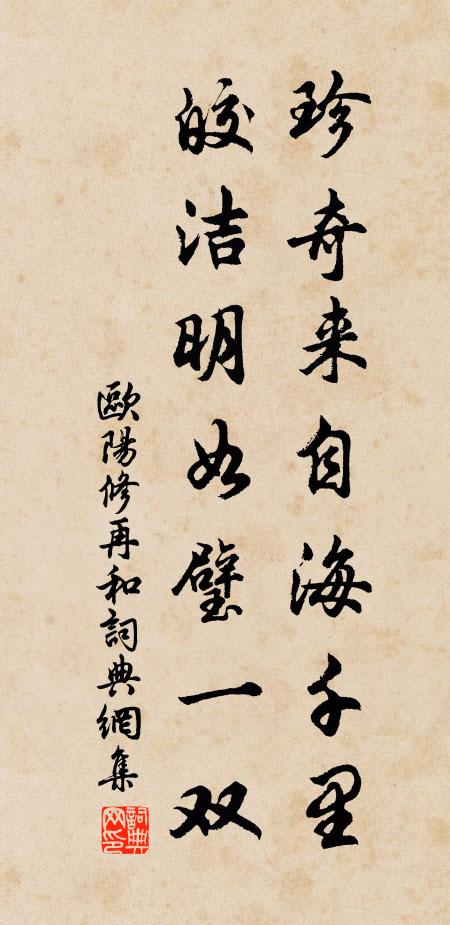 珍奇来自海千里
皎洁明如璧一双
歐陽修再和詞典網集
詞典网印